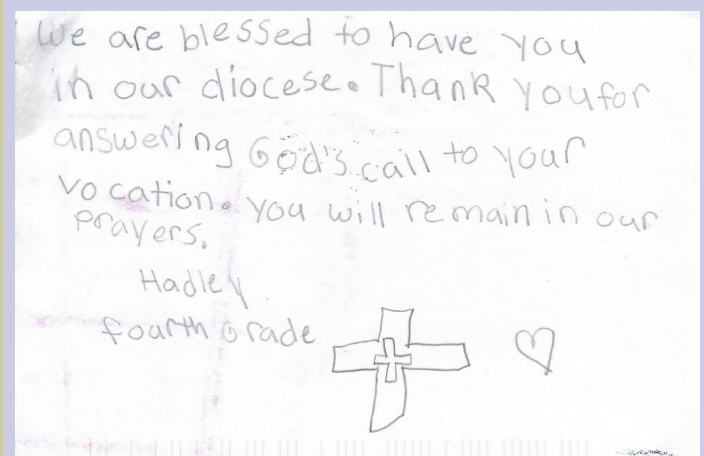 We are blessed to have you
in our diocese. Thank you for
answering God's call to your
vocation. You will remain in our
prayers.
Hadley
fourth Grade